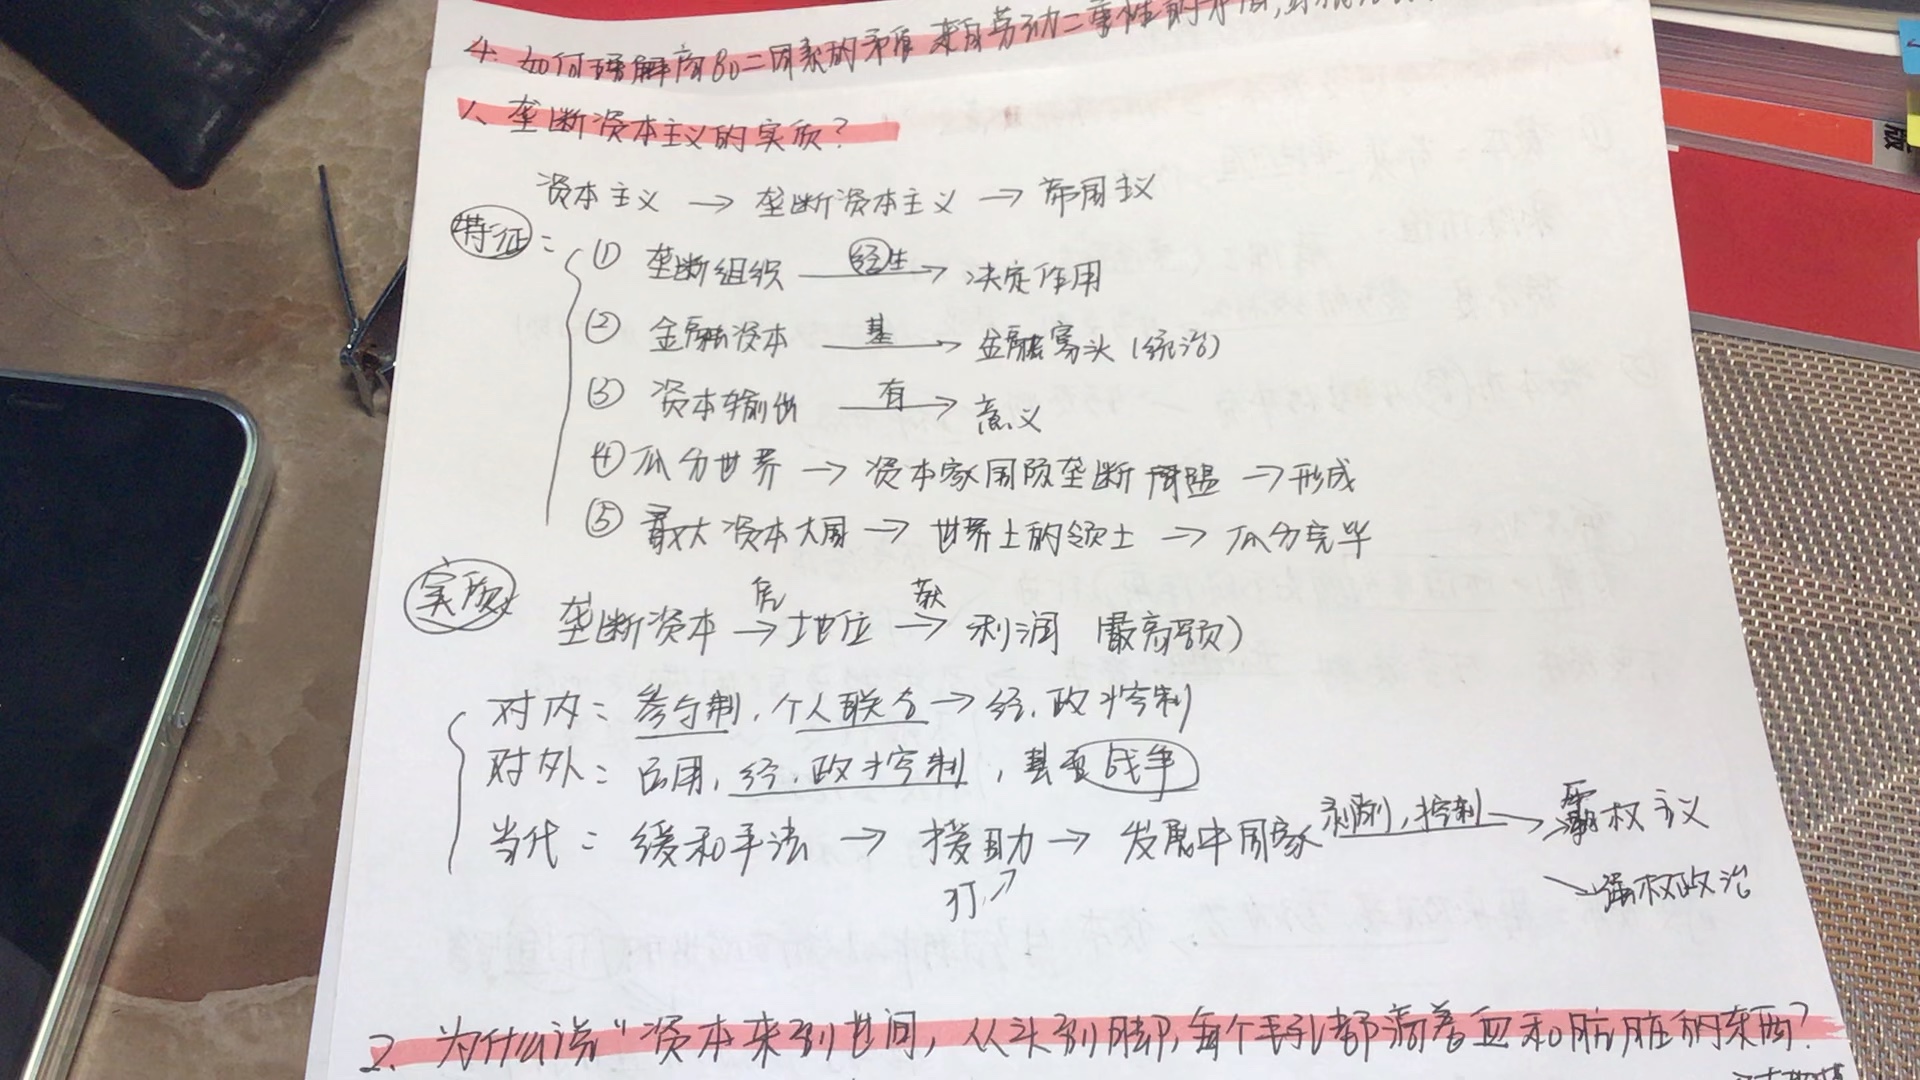 4. 如何理解商品二因素的矛盾来自劳动二重性的矛盾,
1、垄断资本主义的实质?
资本主义 → 垄断资本主义 → 帝国主义
特征:
① 垄断组织 经生→ 决定作用
② 金融资本 基→ 金融寡头(统治)
③ 资本输出 有→ 意义
④ 瓜分世界 → 资本家国际垄断同盟 → 形成
⑤ 最大资本大国 → 世界上的领土 → 瓜分完毕
实质
垄断资本 凭→ 地位 获→ 利润(最高额)
对内: 参与制, 个人联合 → 经、政控制
对外: 占用, 经、政控制, 甚至战争
当代: 缓和手法 → 援助 → 发展中国家 剥削,控制→ 霸权主义
打↗
↘强权政治
2. 为什么说"资本来到世间, 从头到脚, 每个毛孔都滴着血和肮脏的东西?
版